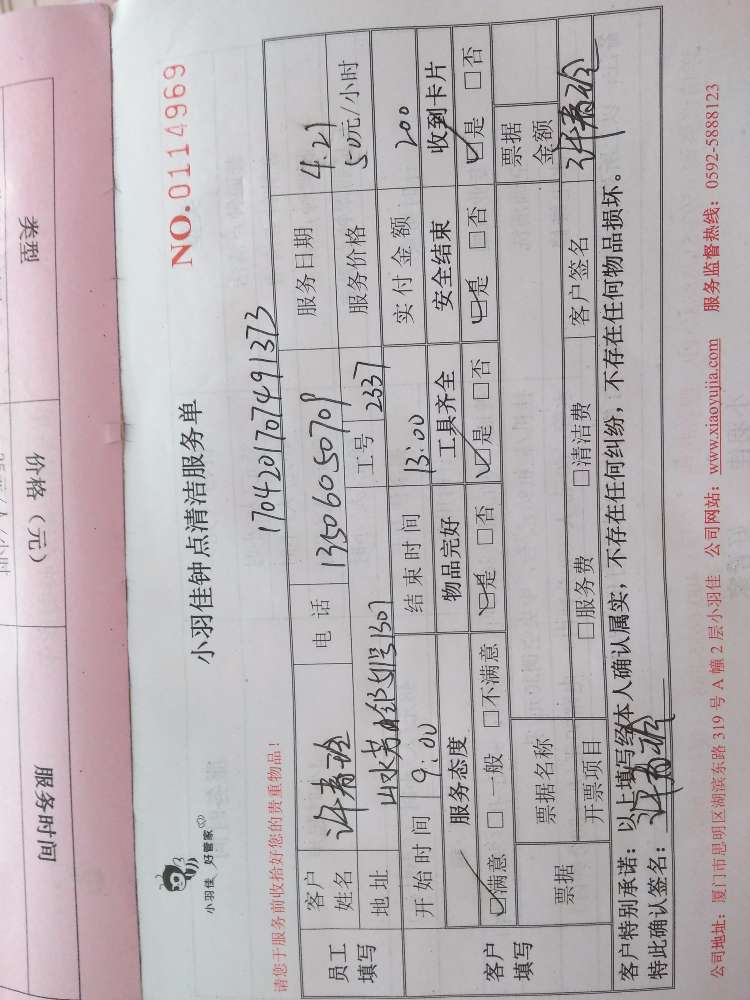 类型
价格（元）
服务时间
小羽佳 好管家
NO.0114969
小羽佳钟点清洁服务单
请您于服务前收拾好您的贵重物品！
1704201707491373
员工填写
客户姓名 许春玲 电话 13506050709 服务日期 4.21
地址 工号 2337 服务价格 50元/小时
客户填写
开始时间 9:00 结束时间 13:00 实付金额 200
服务态度 物品完好 工具齐全 安全结束 收到卡片
☑满意 □一般 □不满意 ☑是 □否 ☑是 □否 ☑是 □否 ☑是 □否
票据 票据名称 票据金额
开票项目 □服务费 □清洁费 客户签名 许春玲
客户特别承诺：以上填写经本人确认属实，不存在任何纠纷，不存在任何物品损坏。
特此确认签名：许春玲
公司地址：厦门市思明区湖滨东路 319 号 A 幢 2 层小羽佳 公司网站：www.xiaoyujia.com 服务监督热线：0592-5888123